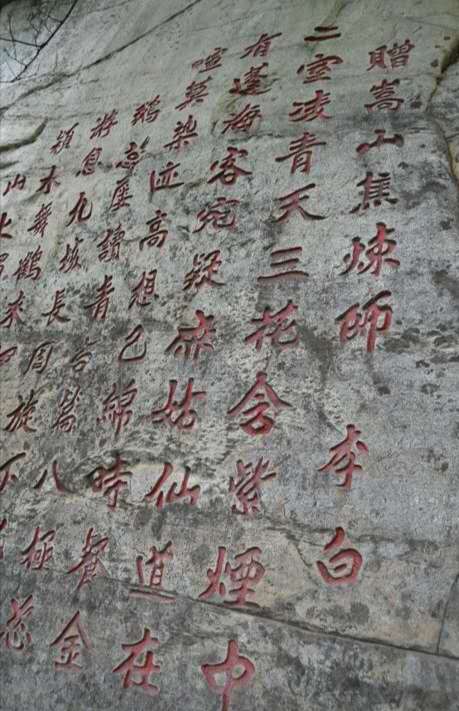 贈嵩山焦煉師 李白
二室凌青天三花含紫煙中
有蓬海客宛疑麻姑仙道在
喧莫染迹高想已綿時餐金
鵝蕊屢讀青苔篇八極恣
息九垓長周旋下
潁水舞鶴來
山